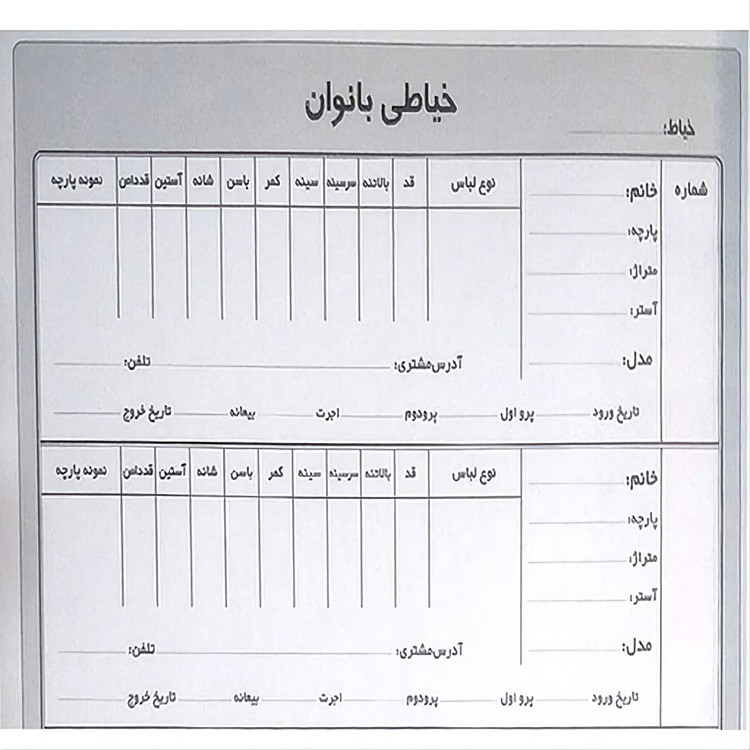 خیاطی بانوان
خیاط:
شماره
خانم:
نوع لباس قد بالاتنه سرسینه سینه کمر باسن شانه آستین قددامن نمونه پارچه
پارچه:
متراژ:
آستر:
مدل: آدرس‌مشتری: تلفن:
تاریخ ورود پرو اول پرودوم اجرت بیعانه تاریخ خروج
نوع لباس قد بالاتنه سرسینه سینه کمر باسن شانه آستین قددامن نمونه پارچه
خانم:
پارچه:
متراژ:
آستر:
مدل: آدرس‌مشتری: تلفن:
تاریخ ورود پرو اول پرودوم اجرت بیعانه تاریخ خروج